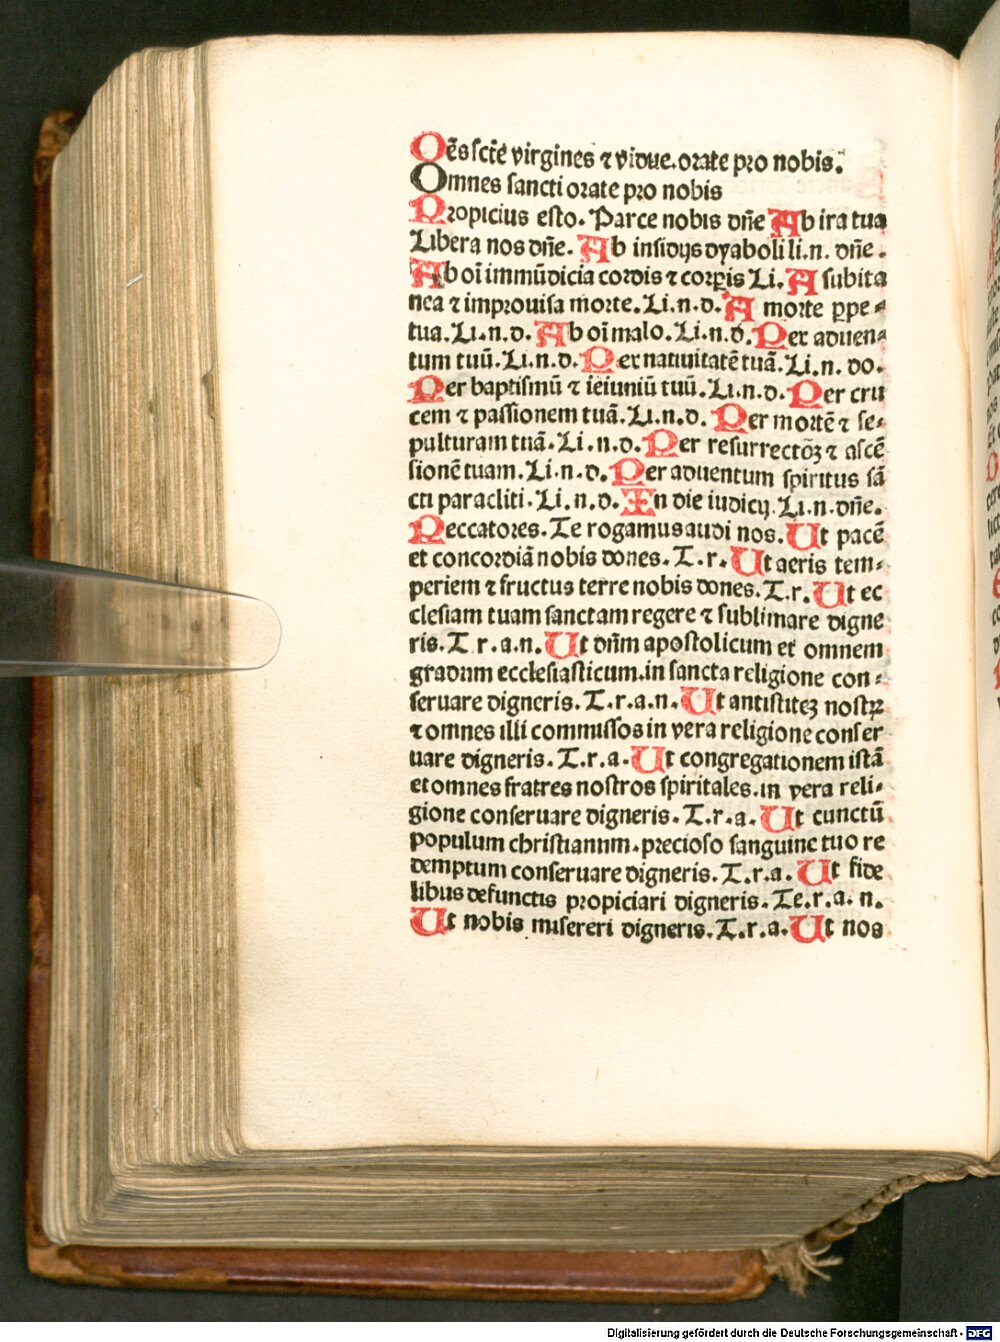 Oēs scte virgines ⁊ vidue. orate pro nobis.
Omnes sancti orate pro nobis
Propicius esto. Parce nobis dn̄e Ab ira tua
Libera nos dn̄e. Ab insidijs dyaboli li.n. dn̄e.
Ab oī immūdicia cordis ⁊ corꝑis Li. A subita
nea ⁊ improuisa morte. Li.n.d. A morte ꝑpe-
tua. Li.n.d. Ab oī malo. Li.n.d. Per aduen-
tum tuū. Li.n.d. Per natiuitatē tuā. Li.n. do.
Per baptismū ⁊ ieiuniū tuū. Li.n.d. Per cru
cem ⁊ passionem tuā. Li.n.d. Per mortē ⁊ se-
pulturam tuā. Li.n.d. Per resurrectōꝫ ⁊ ascē
sionē tuam. Li.n.d. Per aduentum spiritus sā
cti paracliti. Li.n.d. In die iudicij. Li.n.dn̄e.
Peccatores. Te rogamus audi nos. Ut pacē
et concordiā nobis dones. T.r. Ut aeris tem-
periem ⁊ fructus terre nobis dones. T.r. Ut ec
clesiam tuam sanctam regere ⁊ sublimare digne
ris. T.r.a.n. Ut dn̄m apostolicum et omnem
gradum ecclesiasticum. in sancta religione con-
seruare digneris. T.r.a.n. Ut antistiteꝫ nostꝝ
⁊ omnes illi commissos in vera religione conser
uare digneris. T.r.a. Ut congregationem istā
et omnes fratres nostros spiritales. in vera reli-
gione conseruare digneris. T.r.a. Ut cunctū
populum christianum. precioso sanguine tuo re
demptum conseruare digneris. T.r.a. Ut fide
libus defunctis propiciari digneris. Te.r.a.n.
Ut nobis misereri digneris. T.r.a. Ut nos
Digitalisierung gefördert durch die Deutsche Forschungsgemeinschaft - DFG